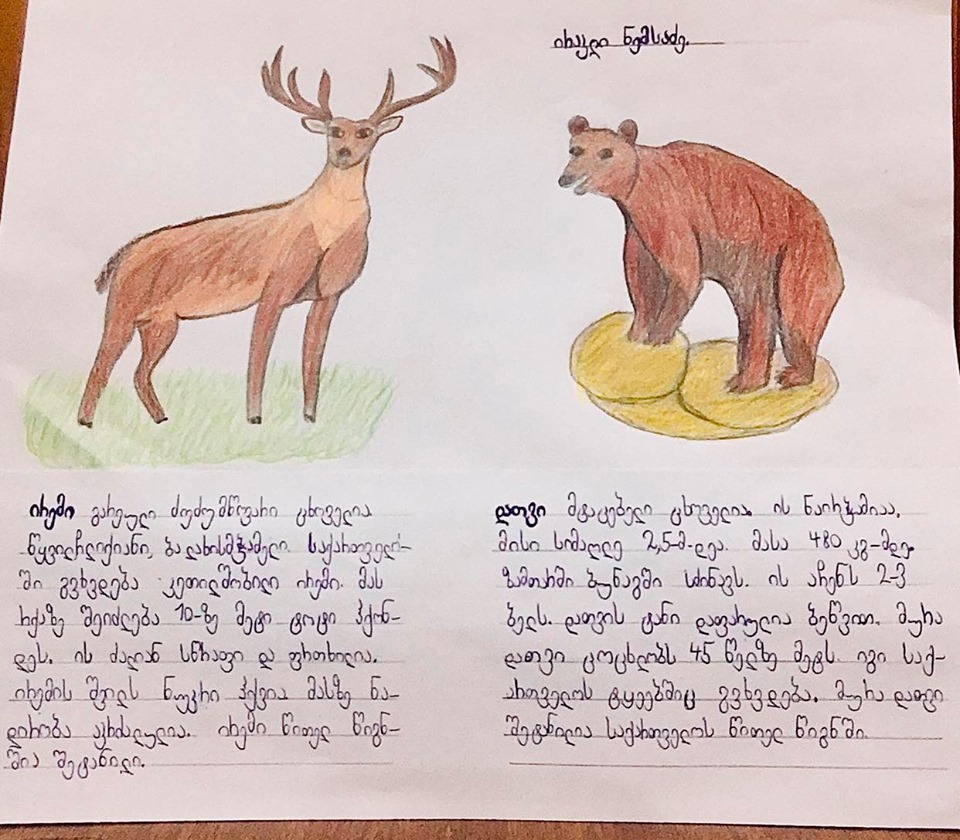 ირაკლი ნემსაძე.
ირემი გარეული ძუძუმწოვარი ცხოველია
წყვილჩლიქიანი, ბალახისმჭამელი. საქართველო-
ში გვხვდება კეთილშობილი ირემი. მას
რქაზე შეიძლება 10-ზე მეტი ტოტი ჰქონ-
დეს. ის ძალიან სწრაფი და ფრთხილია.
ირემის შვილს ნუკრი ჰქვია მასზე ნა-
დირობა აკრძალულია. ირემი წითელ წიგნ-
შია შეტანილი.
დათვი მტაცებელი ცხოველია. ის ნაირჭამიაა,
მისი სიმაღლე 2,5მ-დეა. მასა 480 კგ-მდე
ზამთარში ბუნაგში სძინავს. ის აჩენს 2-3
ბელს. დათვის ტანი დაფარულია ბეწვით. მურა
დათვი ცოცხლობს 45 წელზე მეტს. იგი საქ-
ართველოს ტყეებშიც გვხვდება. მურა დათვი
შეტანილია საქართველოს წითელ წიგნში.